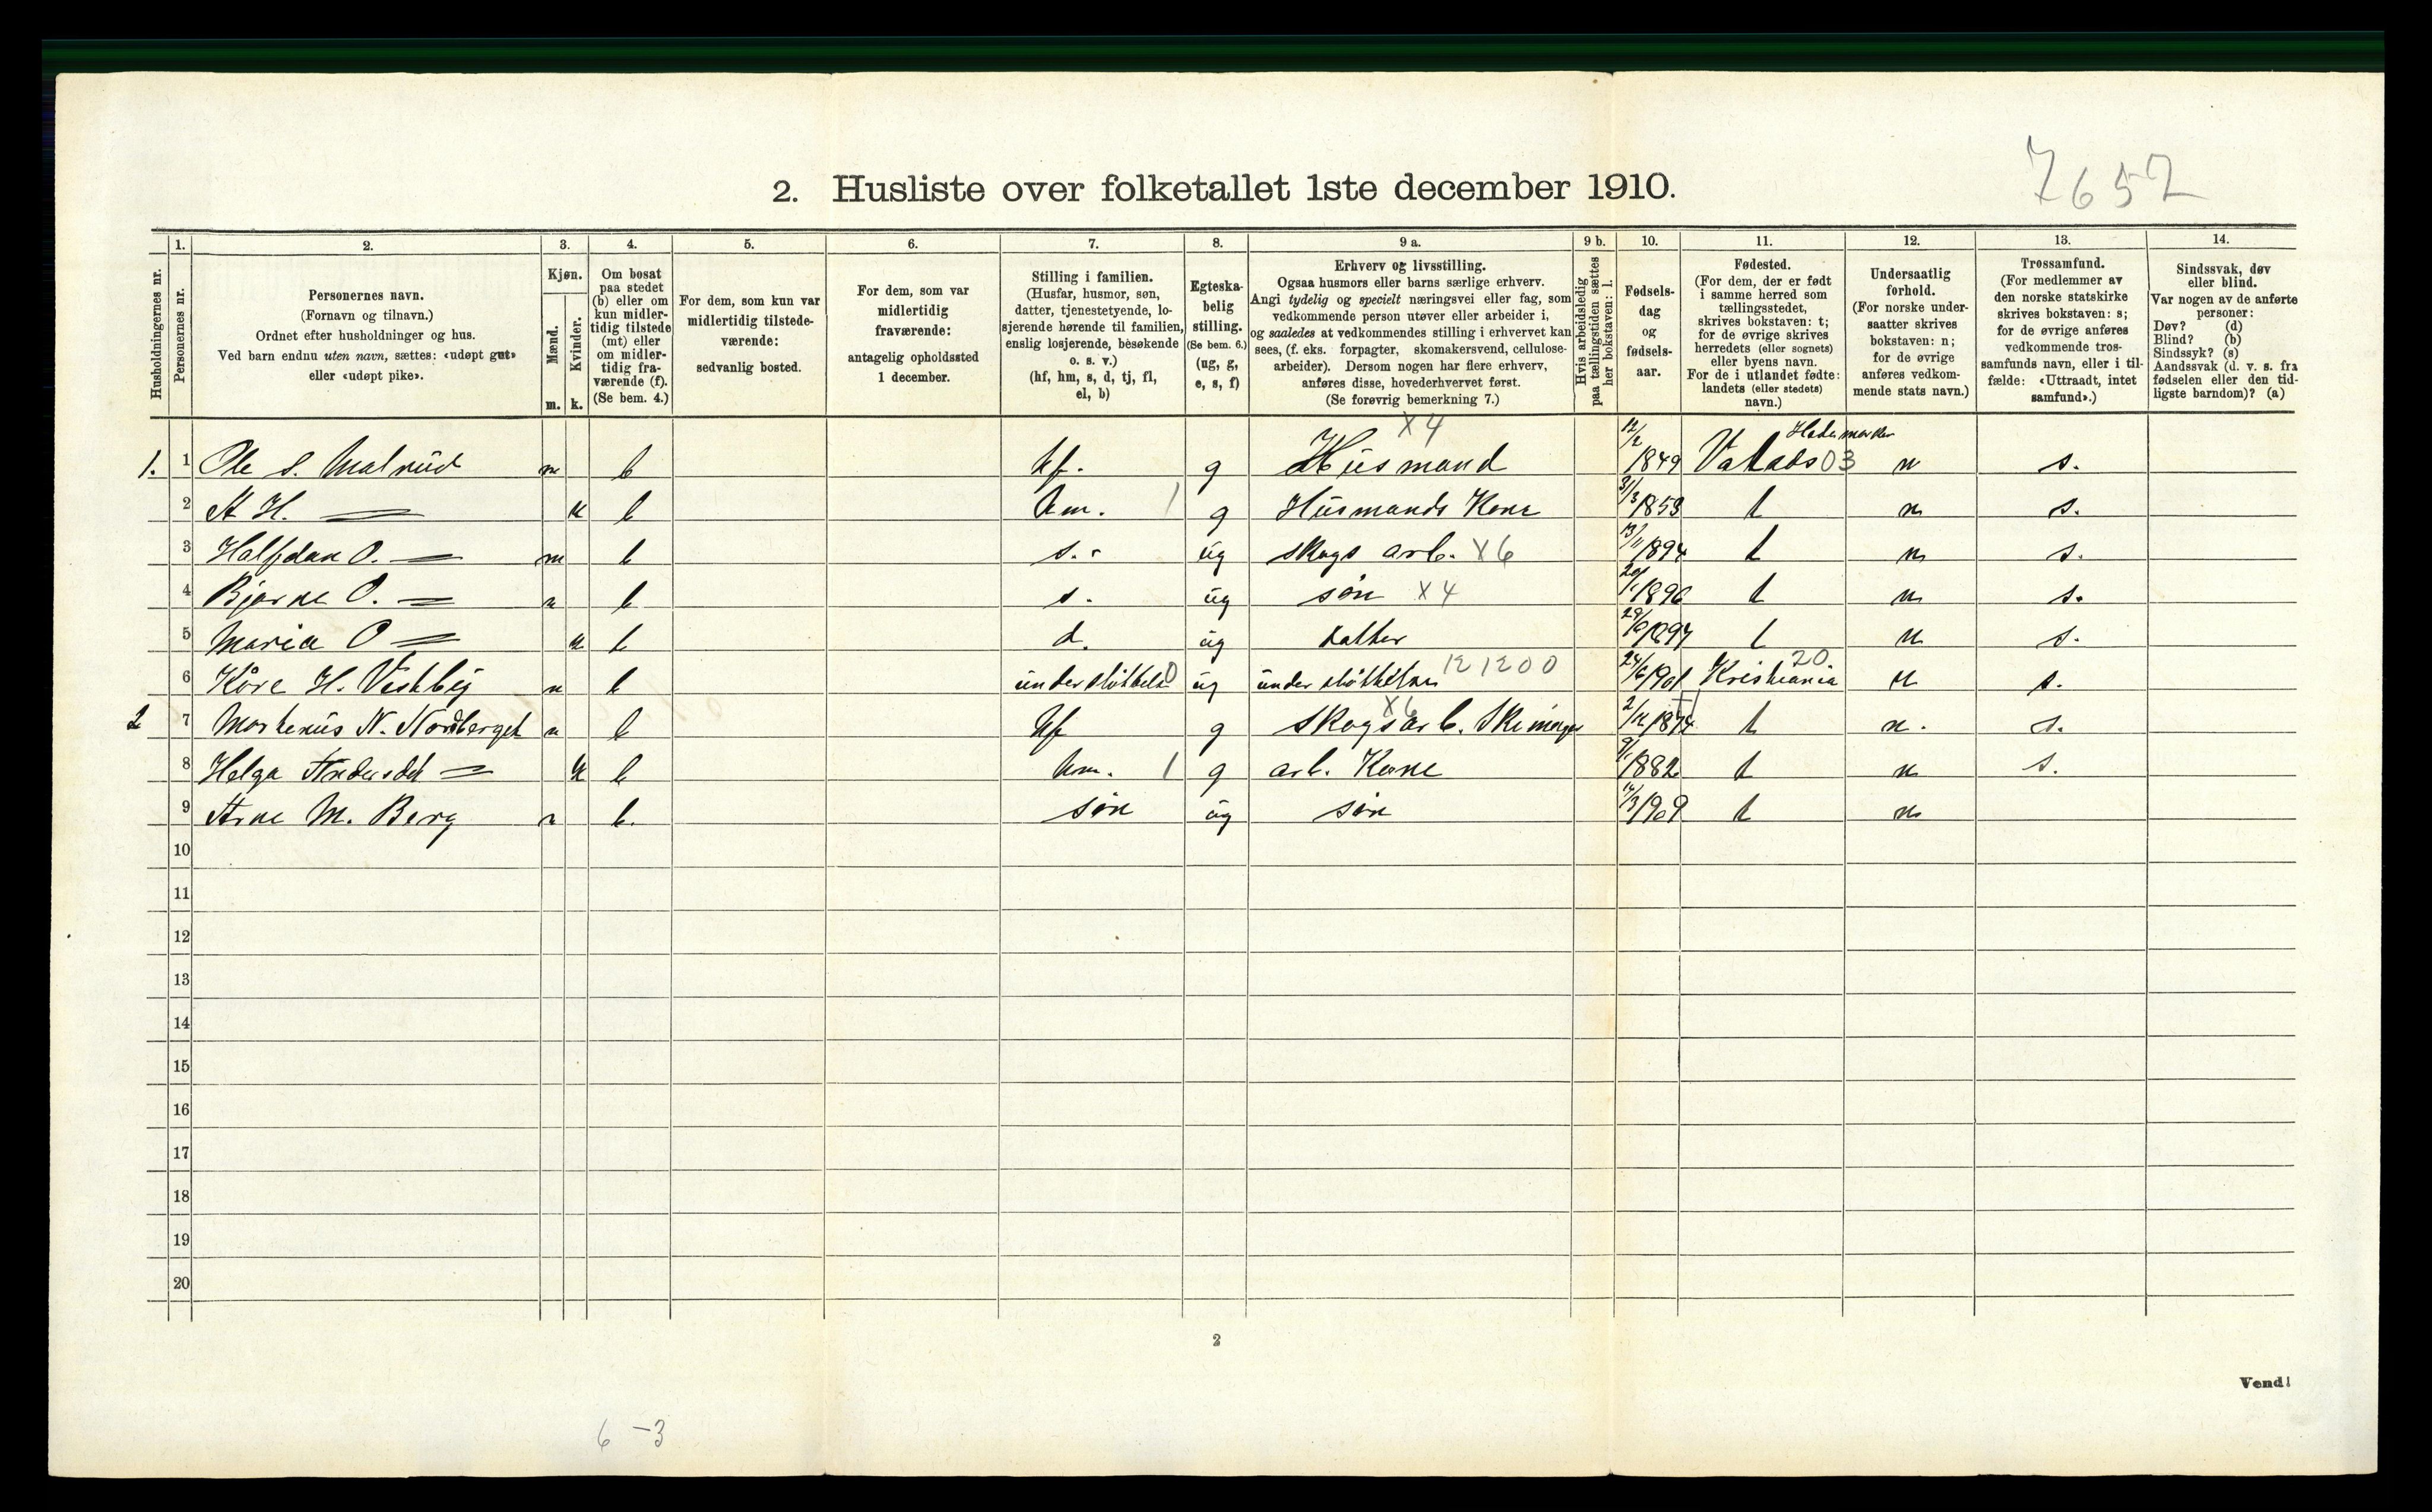 7652
2. Husliste over folketallet 1ste december 1910.
Husholdningernes nr.
1. Personernes nr.
2. Personernes navn.
(Fornavn og tilnavn.)
Ordnet efter husholdninger og hus.
Ved barn endnu uten navn, sættes: «udøpt gut»
eller «udøpt pike».
3. Kjøn.
Mænd. m.
Kvinder. k.
4. Om bosat
paa stedet
(b) eller om
kun midler-
tidig tilstede
(mt) eller
om midler-
tidig fra-
værende (f).
(Se bem. 4.)
5. For dem, som kun var
midlertidig tilstede-
værende:
sedvanlig bosted.
6. For dem, som var
midlertidig
fraværende:
antagelig opholdssted
1 december.
7. Stilling i familien.
(Husfar, husmor, søn,
datter, tjenestetyende, lo-
sjerende hørende til familien,
enslig losjerende, besøkende
o. s. v.)
(hf, hm, s, d, tj, fl,
el, b)
8. Egteska-
belig
stilling.
(Se bem. 6.)
(ug, g,
e, s, f)
9 a. Erhverv og livsstilling.
Ogsaa husmors eller barns særlige erhverv.
Angi tydelig og specielt næringsvei eller fag, som
vedkommende person utøver eller arbeider i,
og saaledes at vedkommendes stilling i erhvervet kan
sees, (f. eks. forpagter, skomakersvend, cellulose-
arbeider). Dersom nogen har flere erhverv,
anføres disse, hovederhvervet først.
(Se forøvrig bemerkning 7.)
9 b. Hvis arbeidsledig
paa tællingstiden sættes
her bokstaven: l.
10. Fødsels-
dag
og
fødsels-
aar.
11. Fødested.
(For dem, der er født
i samme herred som
tællingsstedet,
skrives bokstaven: t;
for de øvrige skrives
herredets (eller sognets)
eller byens navn.
For de i utlandet fødte:
landets (eller stedets)
navn.)
12. Undersaatlig
forhold.
(For norske under-
saatter skrives
bokstaven: n;
for de øvrige
anføres vedkom-
mende stats navn.)
13. Trossamfund.
(For medlemmer av
den norske statskirke
skrives bokstaven: s;
for de øvrige anføres
vedkommende tros-
samfunds navn, eller i til-
fælde: «Uttraadt, intet
samfund».)
14. Sindssvak, døv
eller blind.
Var nogen av de anførte
personer:
Døv? (d)
Blind? (b)
Sindssyk? (s)
Aandssvak (d. v. s. fra
fødselen eller den tid-
ligste barndom)? (a)
X4 Hedemarken
1. 1 Ole S. Malrud m b hf. g Husmand 12/2 1849 03 n s.
2 A H. — k b hm. 1 g Husmands Kone 31/3 1853 t n s.
3 Halfdan O. — m b s. ug skogs arb. X6 13/11 1894 t n s.
4 Bjarne O. — m b s. ug søn X4 20/1 1896 t n s.
5 Maria O — k b d. ug datter 1897 t n s.
6 Kåre H. Vestby m b ug 121200 24/6 1901 Kristiania 20 n s.
2 7 Martenius N. Nordberget m b hf g skogsarb. X6 2/12 1874 t n. s.
8 Helga Andersdt — k b hm. 1 g arb. Kone 9/1 1882 t n s.
9 Arne M. Berg m b. søn ug søn 17/3 1909 t n
10
11
12
13
14
15
16
17
18
19
20
2
Vend!
6 – 3